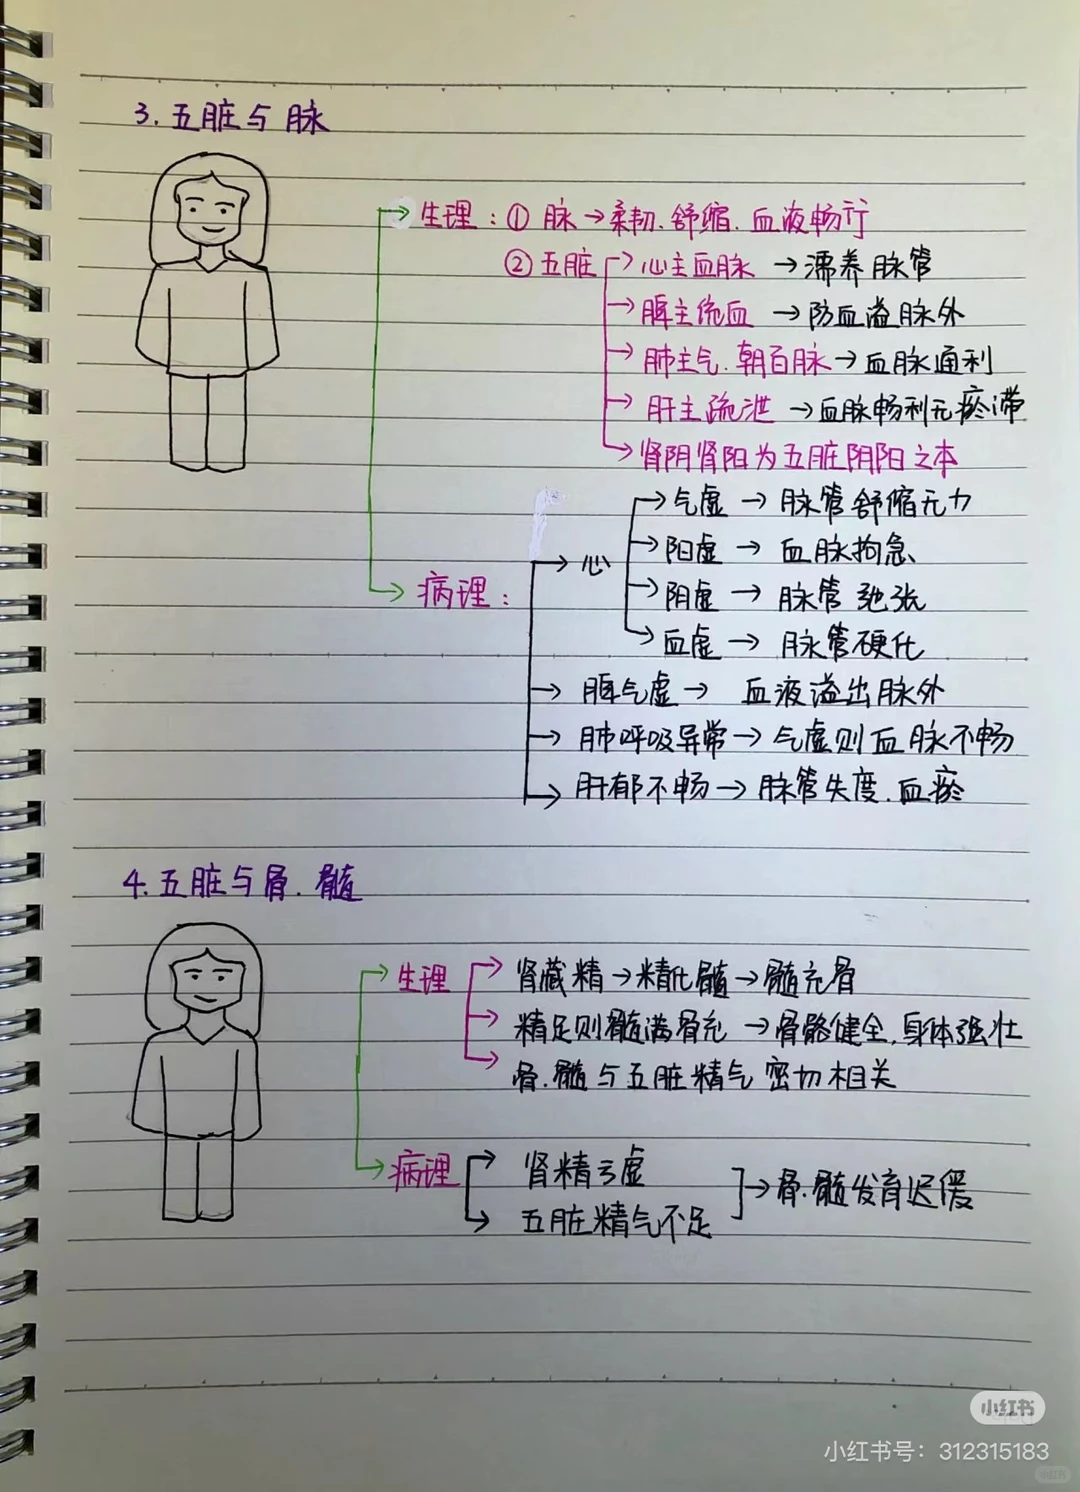 3. 五脏与脉
生理：① 脉→柔韧.舒缩.血液畅行
② 五脏→心主血脉→濡养脉管
→脾主统血→防血溢脉外
→肺主气.朝百脉→血脉通利
→肝主疏泄→血脉畅利无瘀滞
→肾阴肾阳为五脏阴阳之本
→气虚→脉管舒缩无力
→心→阳虚→血脉拘急
病理：→阴虚→脉管弛张
→血虚→脉管硬化
→脾气虚→血液溢出脉外
→肺呼吸异常→气虚则血脉不畅
→肝郁不畅→脉管失度.血瘀
4. 五脏与骨.髓
→生理→肾藏精→精化髓→髓充骨
→精足则髓满骨充→骨骼健全,身体强壮
→骨.髓与五脏精气密切相关
→病理→肾精亏虚
→五脏精气不足
→骨.髓发育迟缓
小红书
小红书号：312315183
小红书